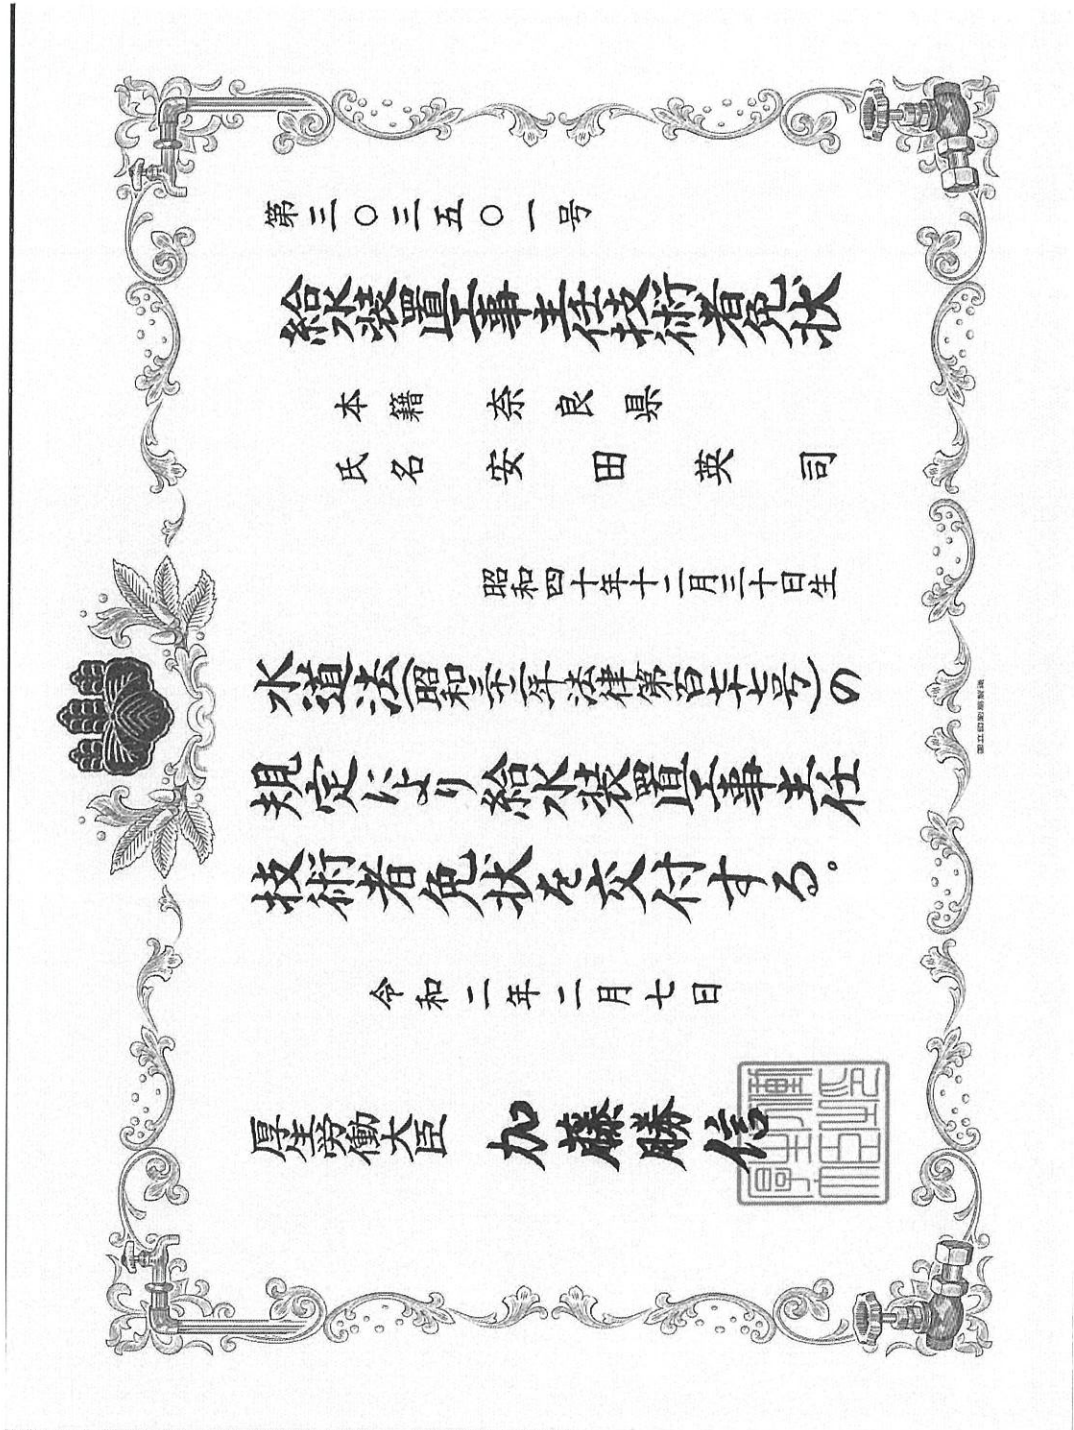 第三〇三五〇一号
給水装置工事主任技術者免状
本籍 奈良県
氏名 安田英司
昭和四十年十二月三十日生
水道法(昭和三十二年法律第百七十七号)の
規定により給水装置工事主任
技術者免状を交付する。
令和二年二月七日
厚生労働大臣 加藤勝信
厚生労働
大臣之印
国立印刷局製造